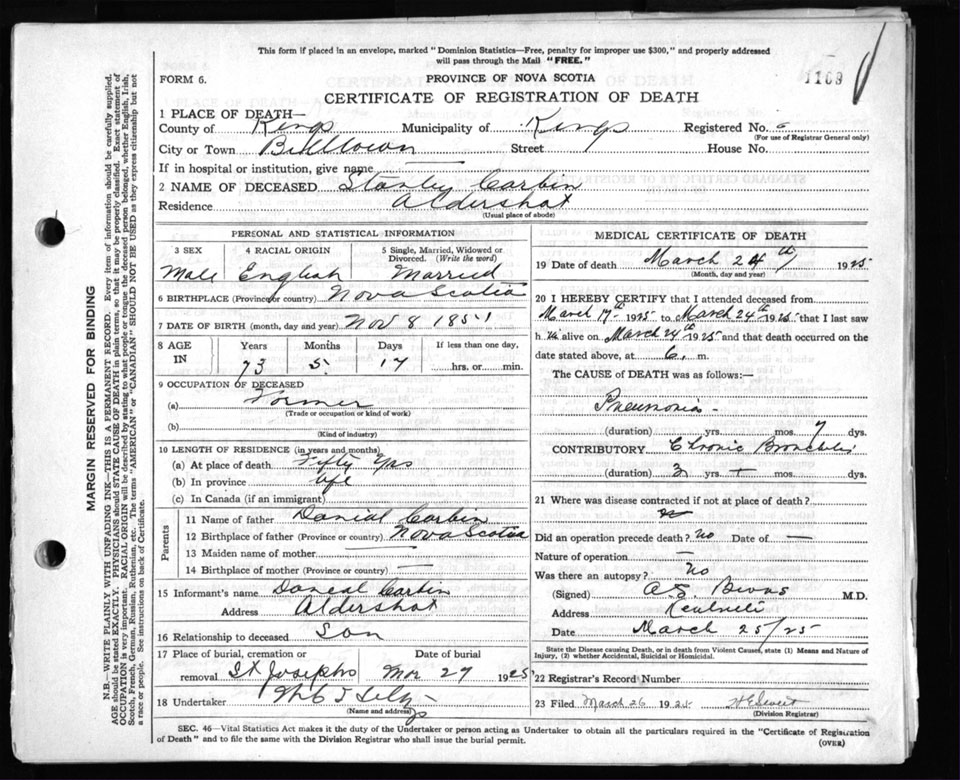 This form if placed in an envelope, marked "Dominion Statistics—Free, penalty for improper use $300," and properly addressed
will pass through the Mail "FREE."
1169
FORM 6.
PROVINCE OF NOVA SCOTIA
CERTIFICATE OF REGISTRATION OF DEATH
1 PLACE OF DEATH—
County of Kings Municipality of Kings Registered No.
(For use of Registrar General only)
City or Town Billtown Street House No.
If in hospital or institution, give name —
2 NAME OF DECEASED Stanley Corbin
Residence Aldershot
(Usual place of abode)
PERSONAL AND STATISTICAL INFORMATION
3 SEX 4 RACIAL ORIGIN 5 Single, Married, Widowed or Divorced. (Write the word)
Male English Married
6 BIRTHPLACE (Province or country) Nova Scotia
7 DATE OF BIRTH (month, day and year) Nov 8 1851
8 AGE IN Years Months Days If less than one day,
73 5 17 hrs. or min.
9 OCCUPATION OF DECEASED
(a) Farmer
(Trade or occupation or kind of work)
(b)
(Kind of industry)
10 LENGTH OF RESIDENCE (in years and months)
(a) At place of death Fifty Yrs
(b) In province Life
(c) In Canada (if an immigrant)
Parents
11 Name of father Danial Corbin
12 Birthplace of father (Province or country) Nova Scotia
13 Maiden name of mother —
14 Birthplace of mother (Province) Country) —
15 Informant's name Daneal Corbin
Address Aldershot
16 Relationship to deceased Son
17 Place of burial, cremation or removal Date of burial
St Josephs Mar 27 1925
18 Undertaker
(Name and address)
MEDICAL CERTIFICATE OF DEATH
19 Date of death March 24th 1925
(Month, day and year)
20 I HEREBY CERTIFY that I attended deceased from
March 17th 1925 to March 24th 1925 that I last saw
h im alive on March 24th 1925 and that death occurred on the
date stated above, at 6 m.
The CAUSE of DEATH was as follows:—
Pneumonia -
(duration) yrs. mos. 7 dys.
CONTRIBUTORY Chronic Bronchitis
(duration) 3 yrs. — mos. dys.
21 Where was disease contracted if not at place of death?
Did an operation precede death? no Date of —
Nature of operation —
Was there an autopsy? no
(Signed) M.D.
Address
Date March 25/25
State the Disease causing Death, or in death from Violent Causes, state (1) Means and Nature of
Injury, (2) whether Accidental, Suicidal or Homicidal.
22 Registrar's Record Number
23 Filed March 26 1925
(Division Registrar)
SEC. 46—Vital Statistics Act makes it the duty of the Undertaker or person acting as Undertaker to obtain all the particulars required in the "Certificate of Registration
of Death" and to file the same with the Division Registrar who shall issue the burial permit. (OVER)
MARGIN RESERVED FOR BINDING
N.B.—WRITE PLAINLY WITH UNFADING INK—THIS IS A PERMANENT RECORD. Every item of information should be carefully supplied.
AGE should be stated EXACTLY. PHYSICIANS should STATE CAUSE OF DEATH in plain terms, so that it may be properly classified. Exact statement of
OCCUPATION is very important. RACIAL ORIGIN will be described by stating to what people or tongue the deceased person belonged, whether English, Irish,
Scotch, French, German, Russian, Ruthenian, etc. The terms "AMERICAN" or "CANADIAN" SHOULD NOT BE USED as they express citizenship but not
a race or people. See instructions on back of Certificate.